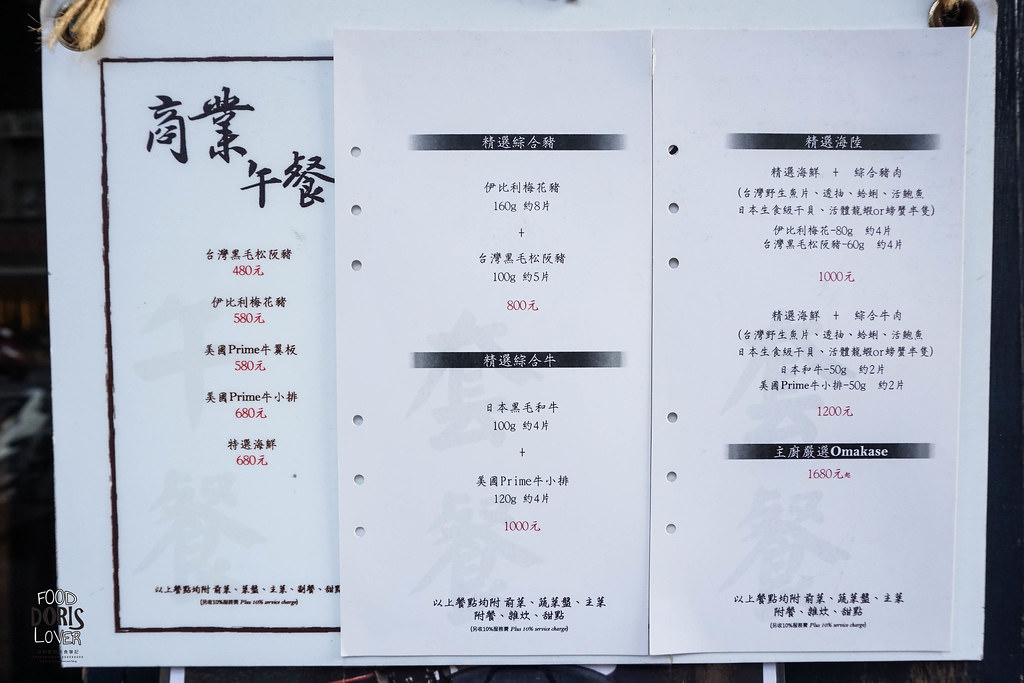 商業
午餐
台灣黑毛松阪豬
480元
伊比利梅花豬
580元
美國Prime牛翼板
580元
美國Prime牛小排
680元
特選海鮮
680元
以上餐點均附 前菜、菜盤、主菜、副餐、甜點
(另收10%服務費 Plus 10% service charge)
精選綜合豬
伊比利梅花豬
160g 約8片
+
台灣黑毛松阪豬
100g 約5片
800元
精選綜合牛
日本黑毛和牛
100g 約4片
+
美國Prime牛小排
120g 約4片
1000元
套
餐
以上餐點均附 前菜、蔬菜盤、主菜
附餐、雜炊、甜點
(另收10%服務費 Plus 10% service charge)
精選海陸
精選海鮮 + 綜合豬肉
(台灣野生魚片、透抽、蛤蜊、活鮑魚
日本生食級干貝、活體龍蝦or螃蟹半隻)
伊比利梅花-80g 約4片
台灣黑毛松阪豬-60g 約4片
1000元
精選海鮮 + 綜合牛肉
(台灣野生魚片、透抽、蛤蜊、活鮑魚
日本生食級干貝、活體龍蝦or螃蟹半隻)
日本和牛-50g 約2片
美國Prime牛小排-50g 約2片
1200元
主廚嚴選Omakase
1680元起
套
餐
以上餐點均附 前菜、蔬菜盤、主菜
附餐、雜炊、甜點
(另收10%服務費 Plus 10% service charge)
午
餐
FOOD
DORIS
LOVER